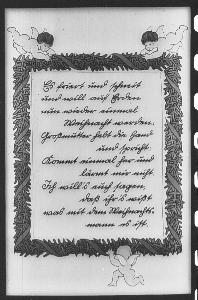 Es friert und schneit
und will auf Erden
nun wieder einmal
Weihnacht werden.
Großmutter hebt die Hand
und spricht
Kommt einmal her und
lärmt mir nicht
Ich will's euch sagen,
daß ihr's wißt
was' mit dem Weihnachts-
mann es ist.